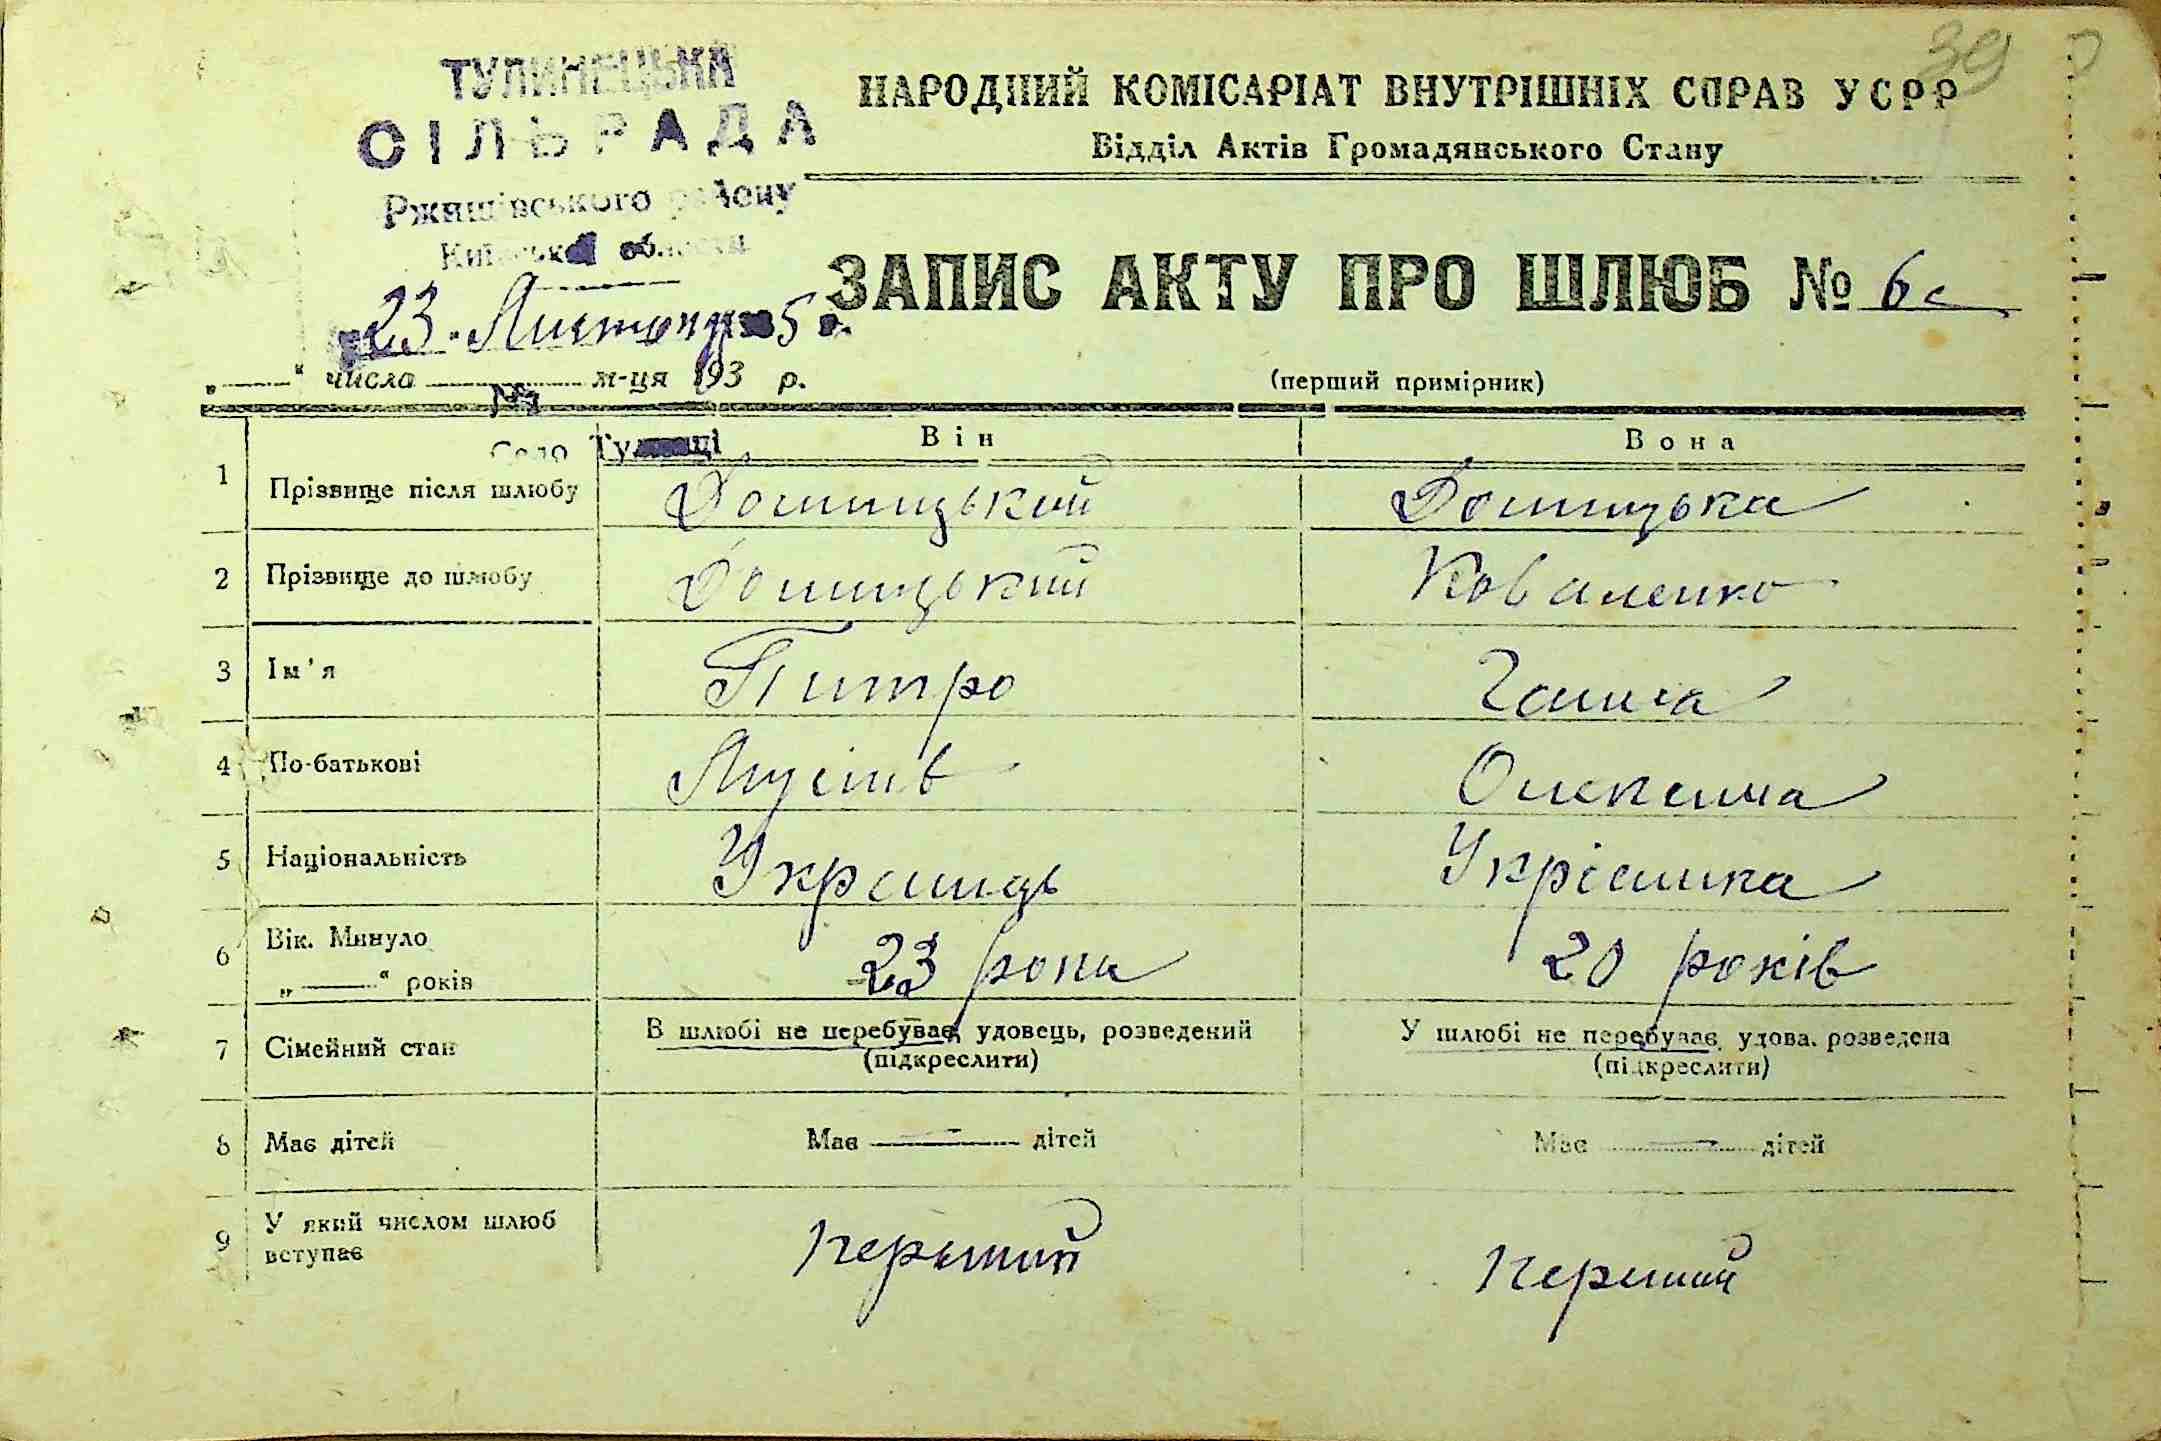 39
ТУЛИНЕЦЬКА
СІЛЬРАДА
Ржищівського району
Київської області
НАРОДНИЙ КОМІСАРІАТ ВНУТРІШНІХ СПРАВ УСРР
Відділ Актів Громадянського Стану
ЗАПИС АКТУ ПРО ШЛЮБ №
23 5 р.
„ “ числа м-ця 193 р.
(перший примірник)
№
Село
Він Вона
1 Прізвище після шлюбу
2 Прізвище до шлюбу Коваленко
3 Ім'я Питро Ганна
4 По-батькові
5 Національність Украінць Укріанка
6 Вік. Минуло 23 рока 20 років
„ “ років
7 Сімейний стан В шлюбі не перебував, удовець, розведений У шлюбі не перебуває, удова, розведена
(підкреслити) (підкреслити)
8 Має дітей Має — дітей Має — дітей
9 У який числом шлюб
вступає перьший перший